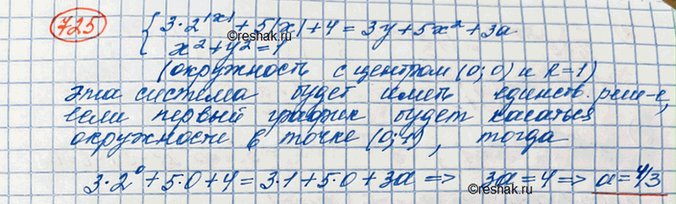 725
3·2^|x| + 5|x| + 4 = 3y + 5x² + 3a
x² + y² = 1
(окружность с центром (0;0) и R=1)
Эта система будет иметь единств. реш-е,
если первый график будет касаться
окружности в точке (0;1), тогда
3·2⁰ + 5·0 + 4 = 3·1 + 5·0 + 3a => 3a = 4 => a = 4/3
©reshak.ru
reshak.ru